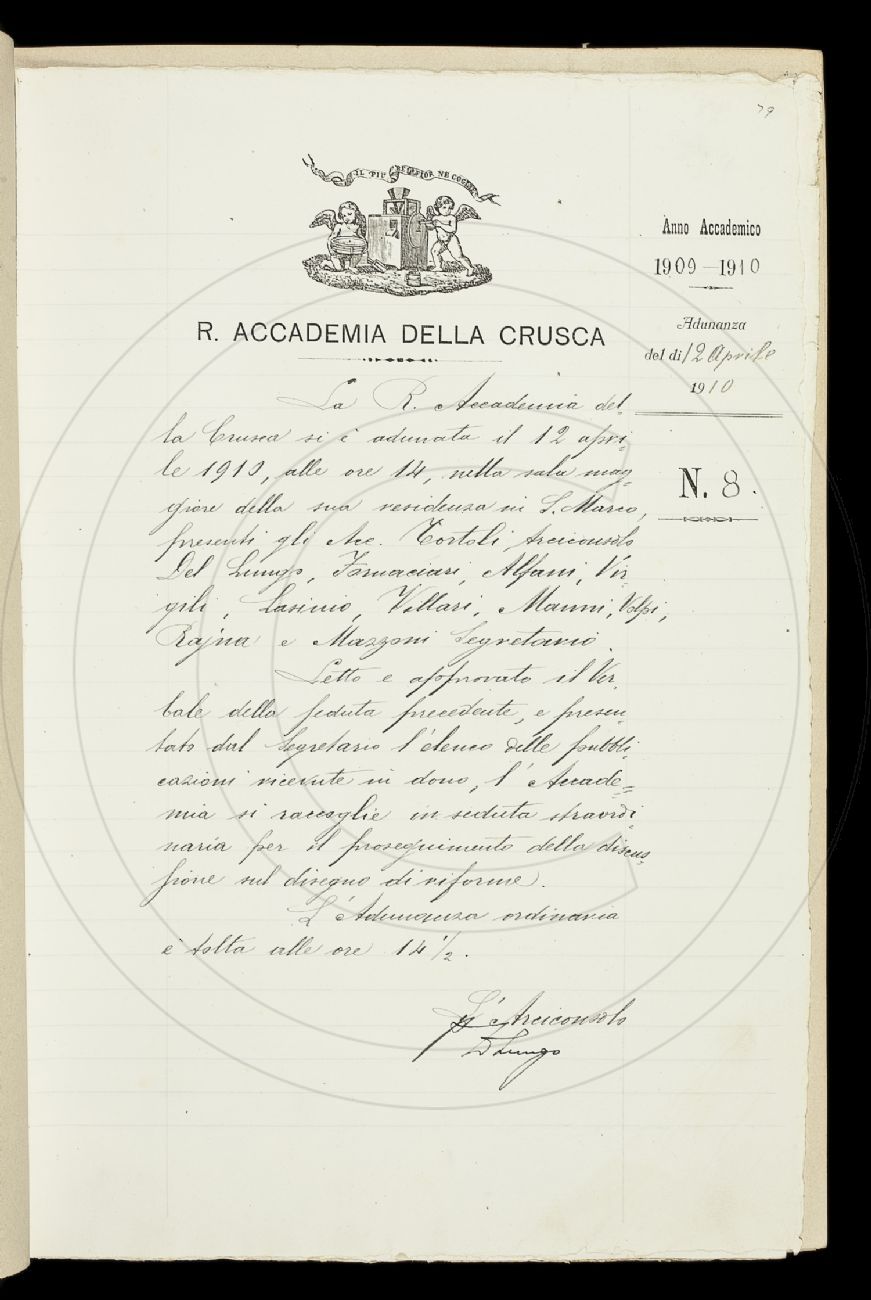 79
IL PIÙ BEL FIOR NE COGLIE
Anno Accademico
1909-1910
R. ACCADEMIA DELLA CRUSCA
Adunanza
del dì 12 Aprile
1910
N. 8.
La R. Accademia del-
la Crusca si è adunata il 12 apri-
le 1910, alle ore 14, nella sala mag-
giore della sua residenza in S. Marco,
presenti gli Acc. Tortoli Arciconsolo
Del Lungo, Fornaciari, Alfani, Vir-
gili, Lasinio, Villari, Manni, Volpi,
Rajna e Mazzoni Segretario.
Letto e approvato il Ver-
bale della seduta precedente, e presen-
tato dal Segretario l'elenco delle pubbli-
cazioni ricevute in dono, l'Accade-
mia si raccoglie in seduta straordi-
naria per il proseguimento della discus-
sione sul disegno di riforme.
L'Adunanza ordinaria
è tolta alle ore 14 1/2.
L'Arciconsolo
D Lungo